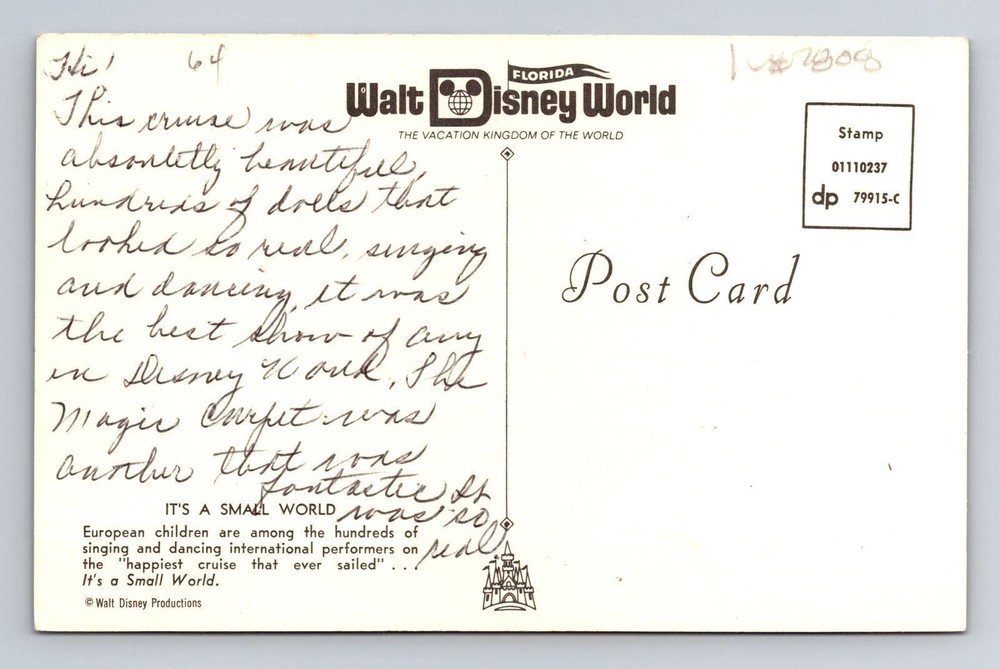 Hi! 64
This cruise was
absouletly beautiful,
hundreds of dolls that
looked so real, singing
and dancing, it was
the best show of any
in Disney World. The
Magic Carpet was
another that was
fantastic It
was so
real
IT'S A SMALL WORLD
European children are among the hundreds of
singing and dancing international performers on
the "happiest cruise that ever sailed" . . .
It's a Small World.
© Walt Disney Productions
FLORIDA
Walt Disney World
THE VACATION KINGDOM OF THE WORLD
7808
Stamp
01110237
dp 79915-C
Post Card